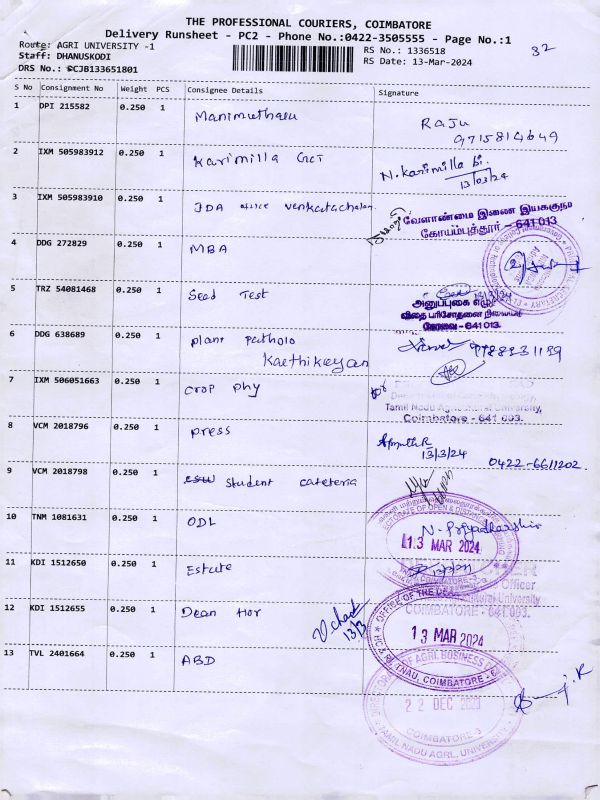 THE PROFESSIONAL COURIERS, COIMBATORE
Delivery Runsheet - PC2 - Phone No.:0422-3505555 - Page No.:1
Route: AGRI UNIVERSITY -1
RS No.: 1336518
32
Staff: DHANUSKODI
RS Date: 13-Mar-2024
DRS No.: CJB133651801
S No Consignment No Weight PCS Consignee Details Signature
1 DPI 215582 0.250 1 Manimuthalu RAJU
9715814649
2 IXM 505983912 0.250 1 Karimilla N. Karimilla Bi.
13/03/24
3 IXM 505983910 0.250 1 JDA office venkatachalam
வேளாண்மை இணை இயக்குநர்
கோயம்புத்தூர் – 641 013
4 DDG 272829 0.250 1 MBA
5 TRZ 54081468 0.250 1 Seed Test
விதை பரிசோதனை நிலையம்
கோவை - 641 013.
6 DDG 638689 0.250 1 plant patholo
Karthikeyan
7 IXM 506051663 0.250 1 crop phy
Tamil Nadu Agricultural University,
Coimbatore - 641 003.
8 VCM 2018796 0.250 1 press
13/3/24
0422-6611202
9 VCM 2018798 0.250 1 student cateteria
10 TNM 1081631 0.250 1 ODL N. Priyadharshini
DIRECTORATE OF OPEN & DISTANCE LEARNING
13 MAR 2024
11 KDI 1512650 0.250 1 Estate
COIMBATORE-3
Officer
University
COIMBATORE - 641 003.
12 KDI 1512655 0.250 1 Dean Hor
13/3
OFFICE OF THE DEAN
13 MAR 2024
TNAU, COIMBATORE - 
13 TVL 2401664 0.250 1 ABD
OF AGRI. BUSINESS
22 DEC
COIMBATORE-3
TAMIL NADU AGRL. UNIVERSITY